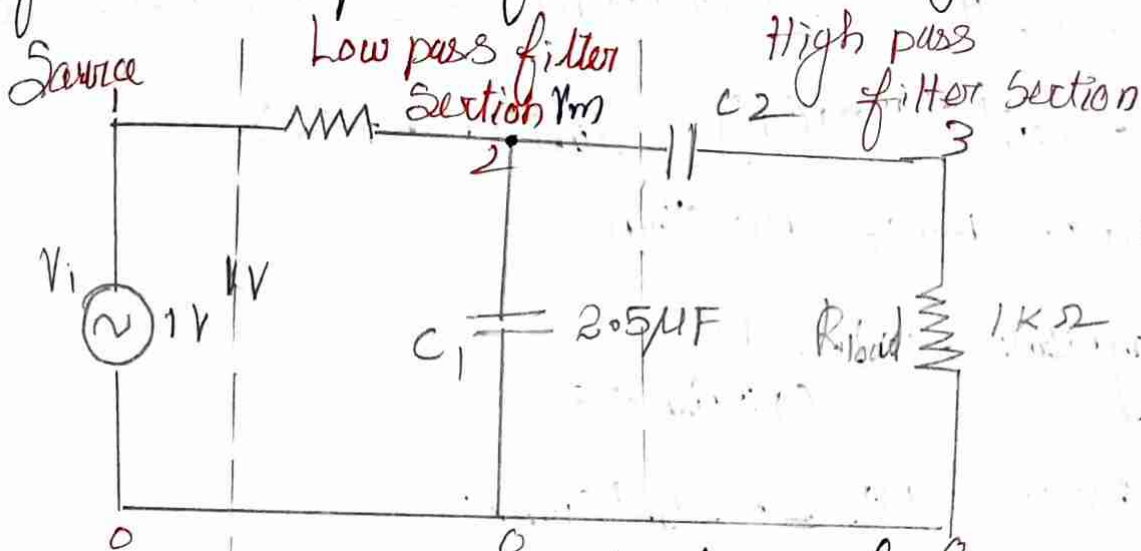 Source
Low pass filter
Section rm
High pass
filter Section
1
C2
3
2
Vi
1V
V
C1
2.5μF
Rload
1KΩ
0
0
0